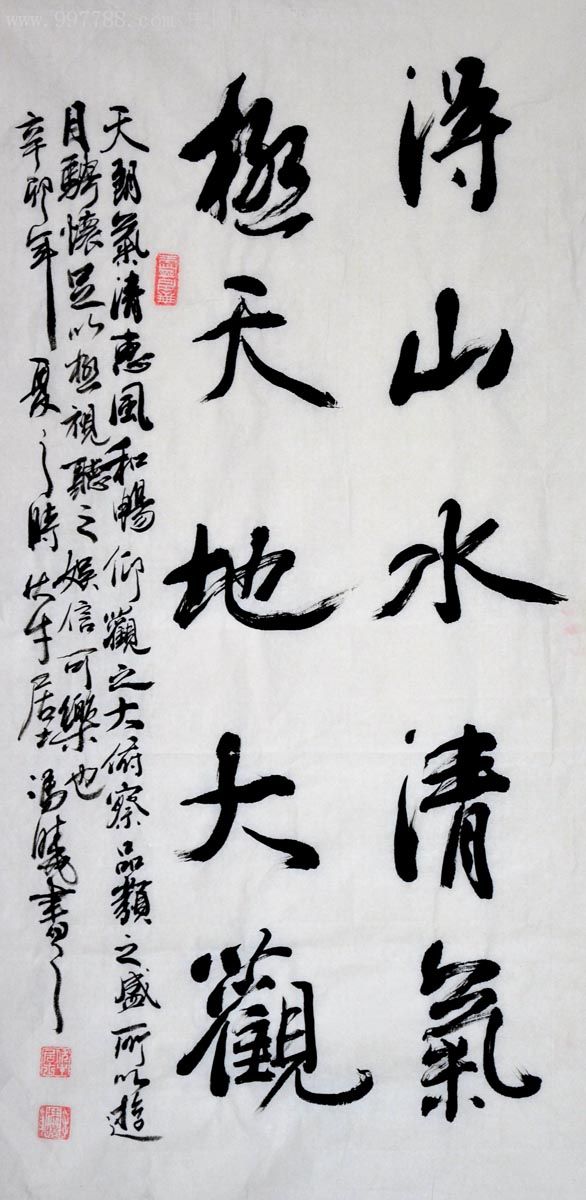 得山水清氣
極天地大觀
天朗氣清惠風和暢仰觀之大俯察品類之盛所以遊
目騁懷足以極視聽之娛信可樂也
辛卯年夏之時 牛居士馮曉書
www.997788.com